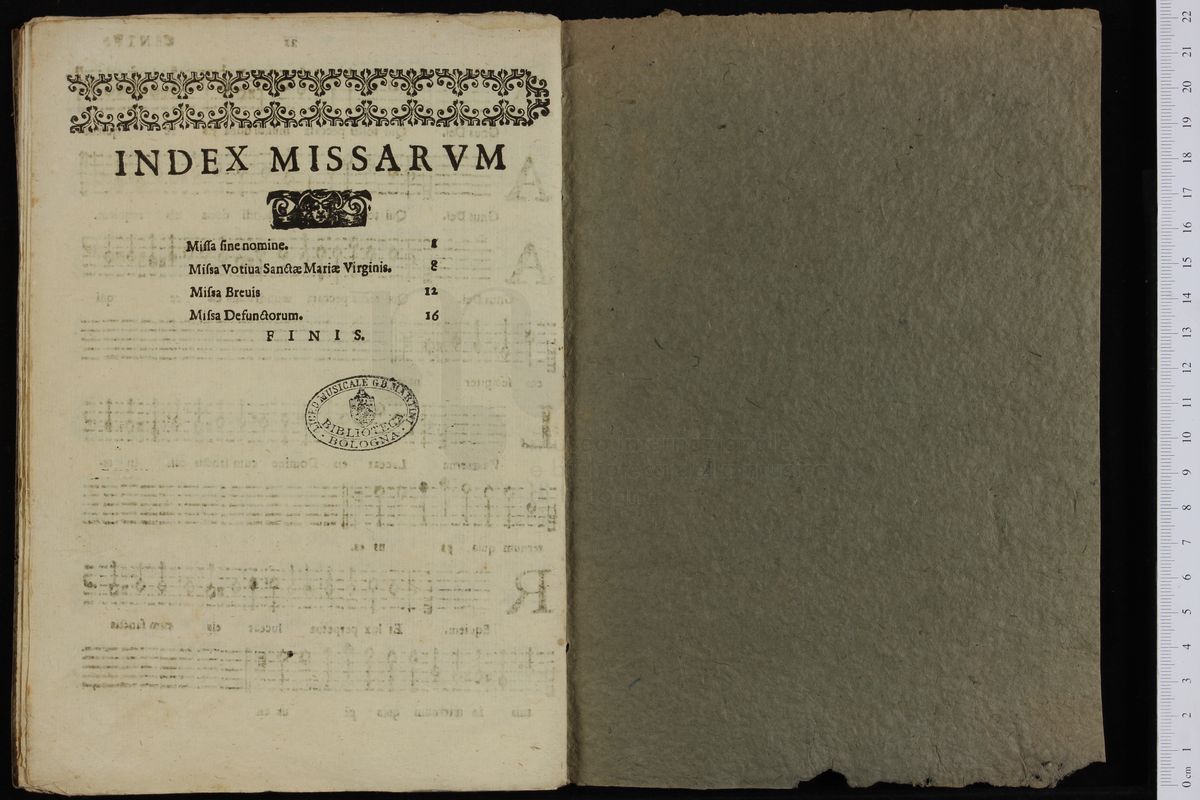 INDEX MISSARVM
Miſſa ſine nomine. 1
Miſsa Votiua Sanctæ Mariæ Virginis. 8
Miſsa Breuis 12
Miſsa Defunctorum. 16
FINIS.
LICEO MUSICALE G.B. MARTINI
BIBLIOTECA
BOLOGNA
0 cm 1 2 3 4 5 6 7 8 9 10 11 12 13 14 15 16 17 18 19 20 21 22